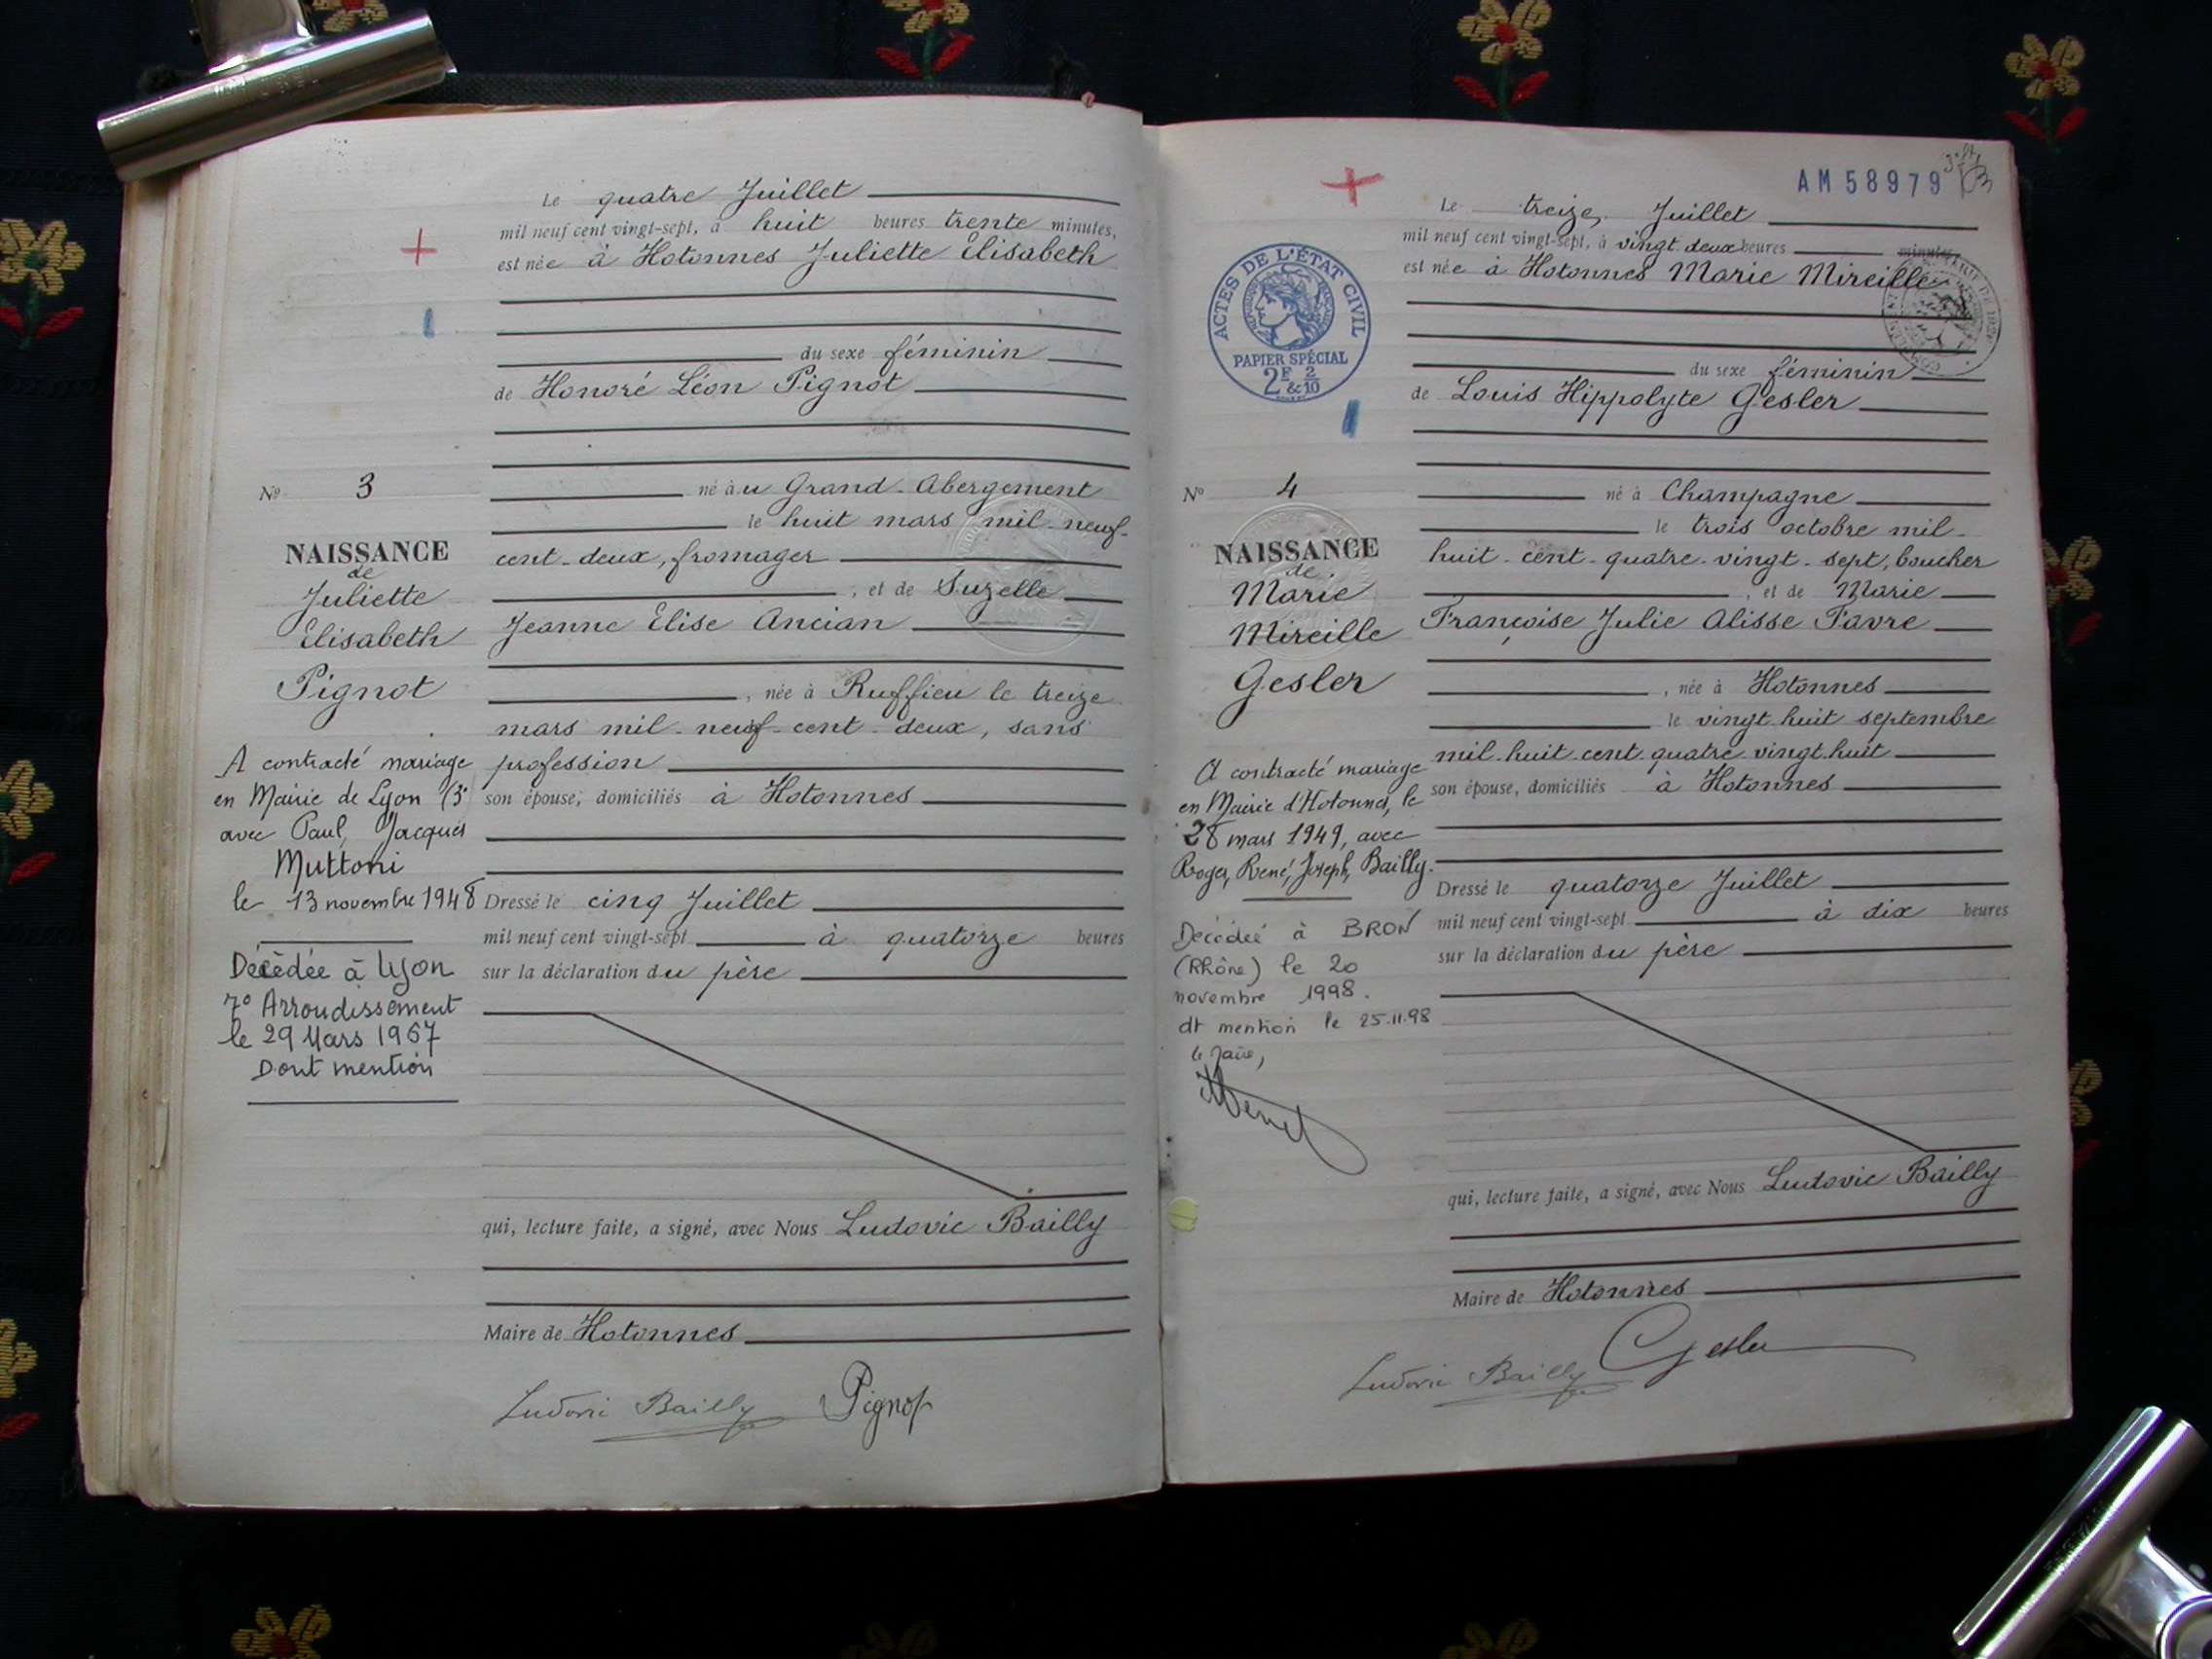 Le quatre Juillet
mil neuf cent vingt-sept, à huit heures trente minutes,
est née à Hotonnes Juliette Elisabeth
du sexe féminin
de Honoré Léon Pignot
né au Grand-Abergement
le huit mars mil-neuf-
cent-deux, fromager
, et de Suzelle
Jeanne Elise Ancian
, née à Ruffieu le treize
mars mil-neuf-cent-deux, sans
profession
son épouse, domiciliés à Hotonnes
Dressé le cinq Juillet
mil neuf cent vingt-sept à quatorze heures
sur la déclaration du père
qui, lecture faite, a signé, avec Nous Ludovic Bailly
Maire de Hotonnes
Ludovic Bailly Pignot
No 3
NAISSANCE
de
Juliette
Elisabeth
Pignot
A contracté mariage
en Mairie de Lyon (3e
avec Paul, Jacques
Muttoni
le 13 novembre 1948
Décédée à Lyon
7e Arrondissement
le 29 Mars 1967
Dont mention
AM 58979
Le treize, Juillet
mil neuf cent vingt-sept, à vingt deux heures minutes,
est née à Hotonnes Marie Mireille
du sexe féminin
de Louis Hippolyte Gesler
né à Champagne
le trois octobre mil-
huit-cent-quatre-vingt-sept, boucher
, et de Marie
Françoise Julie Alisse Favre
, née à Hotonnes
le vingt-huit septembre
mil-huit-cent-quatre-vingt-huit
son épouse, domiciliés à Hotonnes
Dressé le quatorze Juillet
mil neuf cent vingt-sept à dix heures
sur la déclaration du père
qui, lecture faite, a signé, avec Nous Ludovic Bailly
Maire de Hotonnes
Ludovic Bailly Gesler
ACTES DE L'ÉTAT CIVIL
PAPIER SPÉCIAL
2F & 2/10
No 4
NAISSANCE
de
Marie
Mireille
Gesler
A contracté mariage
en Mairie d'Hotonnes, le
28 mars 1949, avec
Roger, René, Joseph, Bailly.
Décédée à BRON
(Rhône) le 20
novembre 1998.
dt mention le 25.11.98
le Maire,